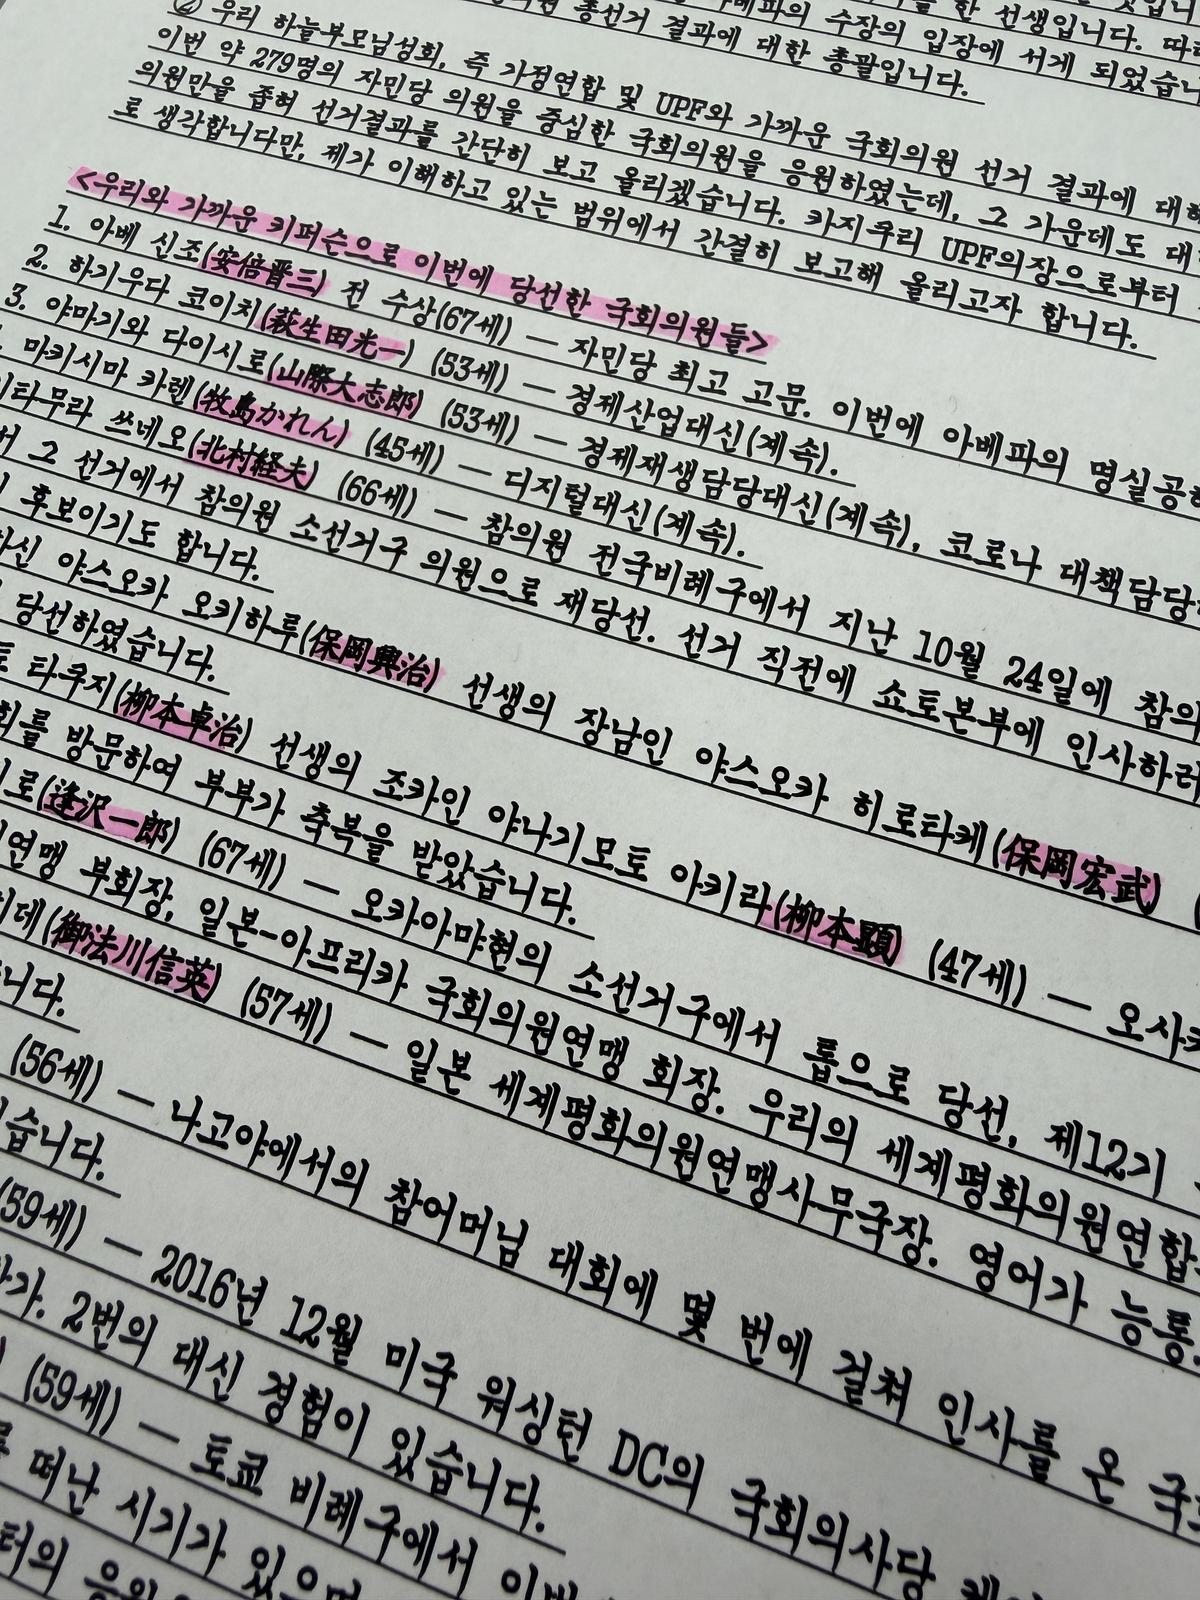 ② 우리 하늘부모님성회, 즉 가정연합 및 UPF와 가까운 국회의원 선거 결과에 대해
총선거 결과에 대한 총괄입니다.
수장의 입장에 서게 되었습니
한 선생입니다. 따라
이번 약 279명의 자민당 의원을 중심한 국회의원을 응원하였는데, 그 가운데도 대
의원만을 좁혀 선거결과를 간단히 보고 올리겠습니다. 카지쿠리 UPF의장으로부터
로 생각합니다만, 제가 이해하고 있는 범위에서 간결히 보고해 올리고자 합니다.
<우리와 가까운 키퍼슨으로 이번에 당선한 국회의원들>
1. 아베 신조(安倍晋三) 전 수상(67세) — 자민당 최고 고문. 이번에 아베파의 명실공히
2. 하기우다 코이치(萩生田光一) (53세) — 경제산업대신(계속).
3. 야마기와 다이시로(山際大志郎) (53세) — 경제재생담당대신(계속), 코로나 대책담당
마키시마 카렌(牧島かれん) (45세) — 디지털대신(계속).
타무라 쓰네오(北村経夫) (66세) — 참의원 전국비례구에서 지난 10월 24일에 참의
그 선거에서 참의원 소선거구 의원으로 재당선. 선거 직전에 쇼토본부에 인사하러
후보이기도 합니다.
하신 야스오카 오키하루(保岡興治) 선생의 장남인 야스오카 히로타케(保岡宏武)
당선하였습니다.
타쿠지(柳本卓治) 선생의 조카인 야나기모토 아키라(柳本顕) (47세) — 오사카
회를 방문하여 부부가 축복을 받았습니다.
로(逢沢一郎) (67세) — 오카야마현의 소선거구에서 톱으로 당선, 제12기
연맹 부회장, 일본-아프리카 국회의원연맹 회장. 우리의 세계평화의원연합
데(御法川信英) (57세) — 일본 세계평화의원연맹사무국장. 영어가 능통
니다.
(56세) — 나고야에서의 참어머님 대회에 몇 번에 걸쳐 인사를 온 국
습니다.
(59세) — 2016년 12월 미국 워싱턴 DC의 국회의사당
가. 2번의 대신 경험이 있습니다.
(59세) — 토쿄 비례구에서 이번
떠난 시기가 있으며
터의 응원